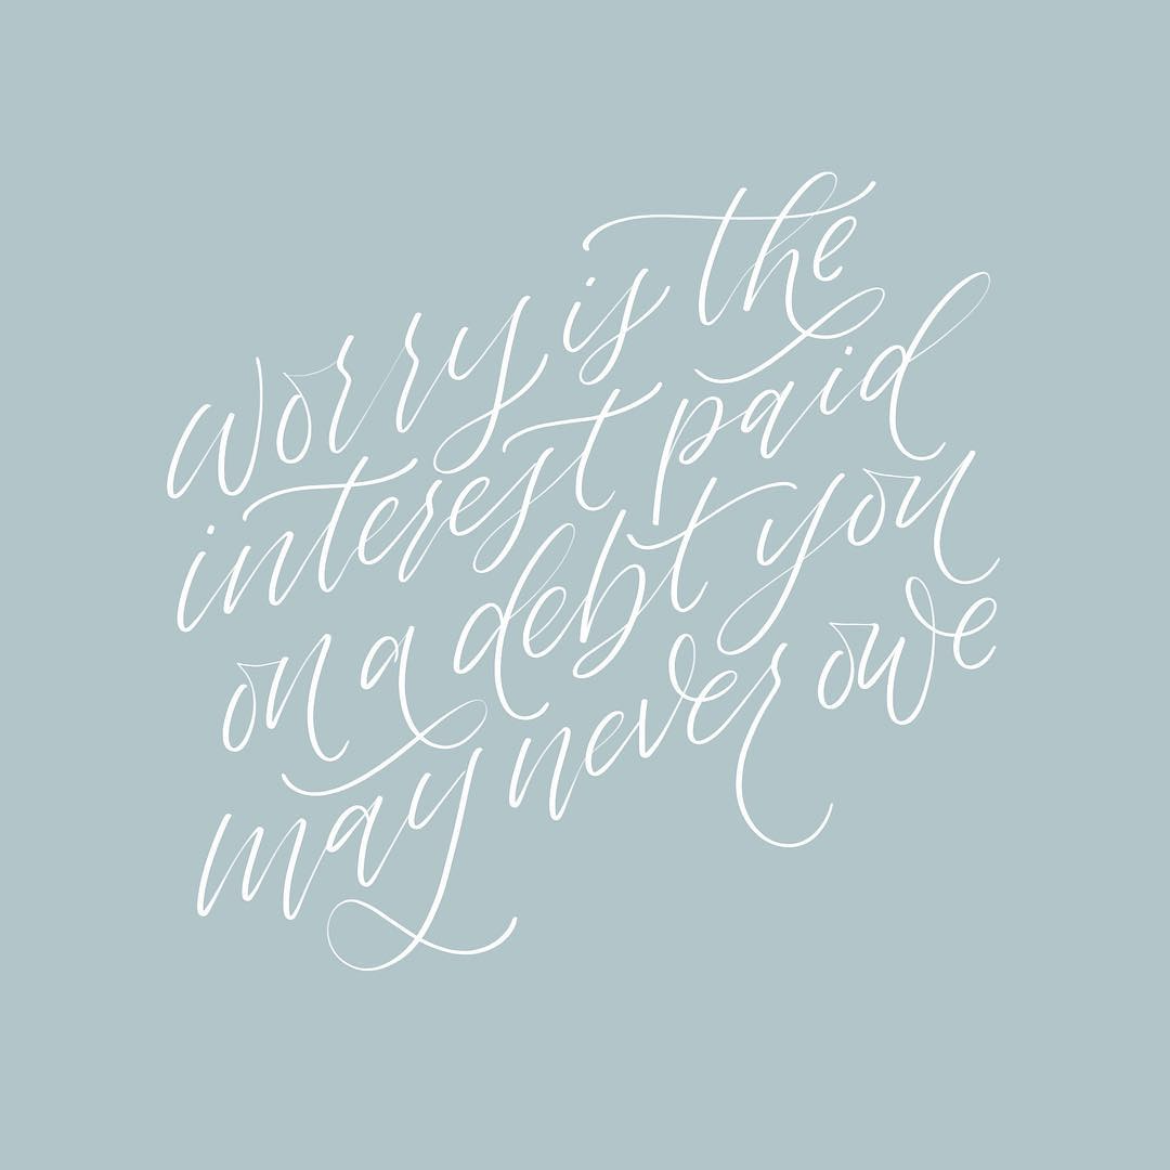 worry is the
interest paid
on a debt you
may never owe